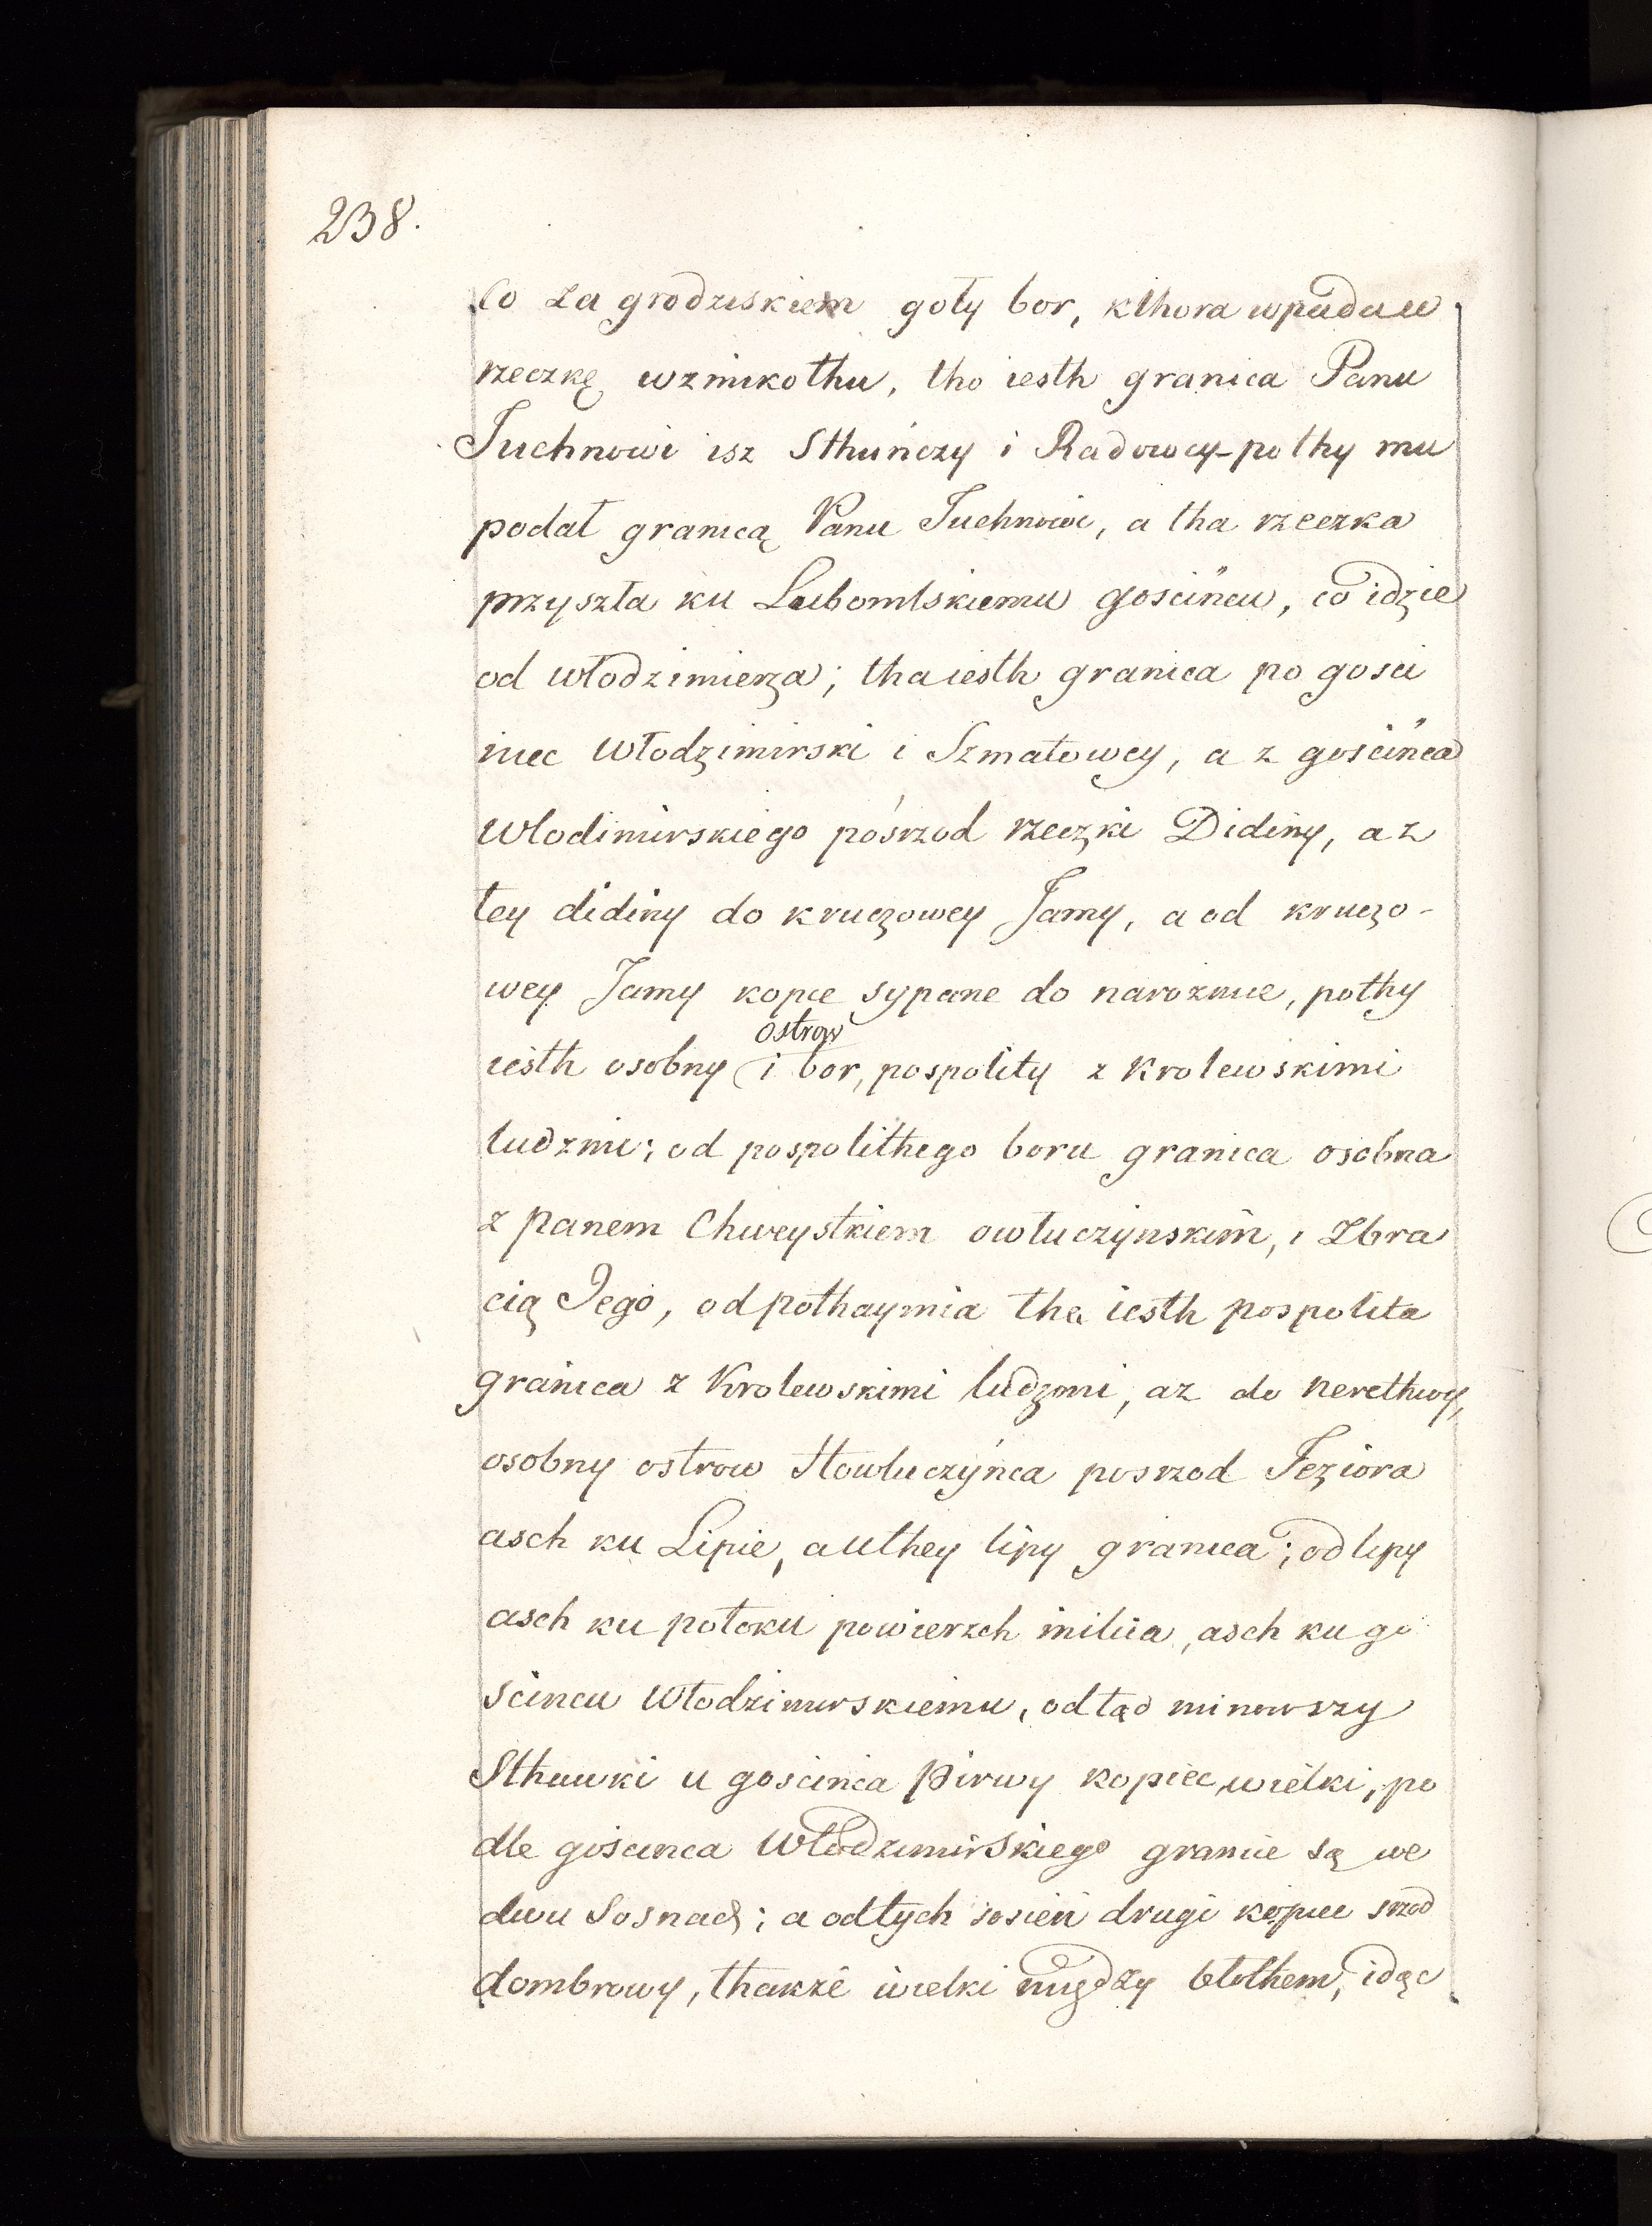 238.
Co za grodziskiem goły bor, kthora wpada w
rzeczkę wzmikothu, tho iesth granica Panu
Juchnowi isz Sthuńczy i Radowcy-pothy mu
podał granicą Panu Juchnowi, a tha rzeczka
przyszła ku Lubomlskiemu gosćińcu, co idzie
od włodzimierza; tha iesth granica po gosci
niec Włodzimirski i Szmatowcy, a z gosćińca
Wlodimirskiego pośrzod rzeczki Didiny, a z
tey didiny do kruczowey Jamy, a od kruczo-
wey Jamy kopce sypane do narożnice, pothy
iesth osobny ostrow i bor, pospolity z Krolewskimi
ludzmi; od pospolithego boru granica osobna
z panem Chweystkiem owłuczynskim, i Zbra
cią Jego, odpothaymia tha iesth pospolita
granica z Krolewskimi ludzmi, az do nerethwy,
osobny ostrow Howluczyńca posrzod Jeziora
asch ku Lipie, a uthey lipy granica; od lipy
asch ku potoku powierzch milicia, asch ku go
scincu Włodzimirskiemu, odtąd minowszy
Sthawki u goscinca pirwy kopiec wielki, po
dle goscinca Włodzimirskiego granie są we
dwu Sosnach; a odtych sosień drugi kopiec srzod
dombrowy, thakże wielki między błothem, idąc